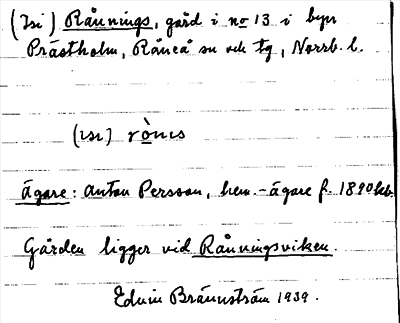 (Isi) Rånnings, gård i no 13 i byn
Prästholm, Råneå sn och tg, Norrb. l.
(ısı) rònıs
Ägare: Anton Persson, hem.-ägare f. 1890
Gården ligger vid Rånningsviken.
Edvin Brännström 1939.